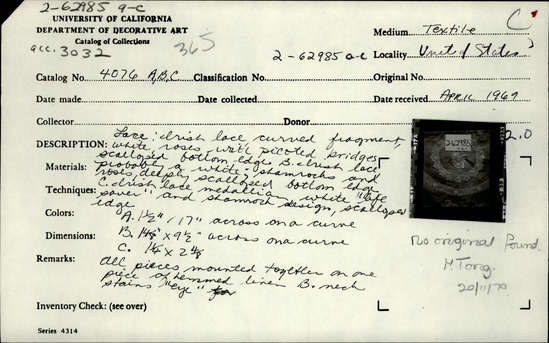 2-62985 a-c
UNIVERSITY OF CALIFORNIA
DEPARTMENT OF DECORATIVE ART
Catalog of Collections
acc. 3032
365
C
Medium Textile
2-62985 a-c Locality United States
Catalog No. 4076 A,B,C Classification No. Original No.
Date made Date collected Date received APRIL 1967
Collector Donor
DESCRIPTION: Lace: Irish lace curved fragment,
white roses, with picoted bridges
scalloped bottom edge B. Irish lace
Materials: probably a white shamrocks and
roses, deeply scalloped bottom edge
Techniques: C. Irish lace medallion white
and shamrock design, scalloped
edge
Colors: A. 1½" / 17" across on a curve
Dimensions: B. x 9½" across on a curve
C. x
Remarks: all pieces mounted together on one
piece of hemmed linen B. neck
stains "eye"
Inventory Check: (see over)
Series 4314
2-62985
2.0
no original found.
M. Tong.
20/11/70